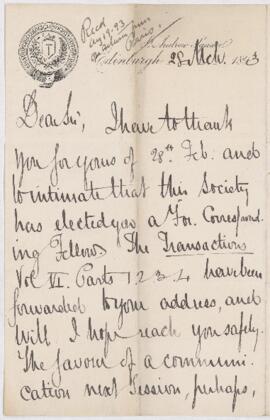 Recd
Aug 19. 93
Paris.
St Andrew Square
Edinburgh 28 Mch. 1893
Dear Sir, I have to thank
you for yours of 28th Feb. and
to intimate that this Society
has elected you a For. Correspond-
ing Fellow. The Transactions
Vol VI. Parts 1. 2. 3. 4 have been
forwarded to your address, and
will I hope reach you safely.
The favour of a communi-
cation next Session, perhaps,